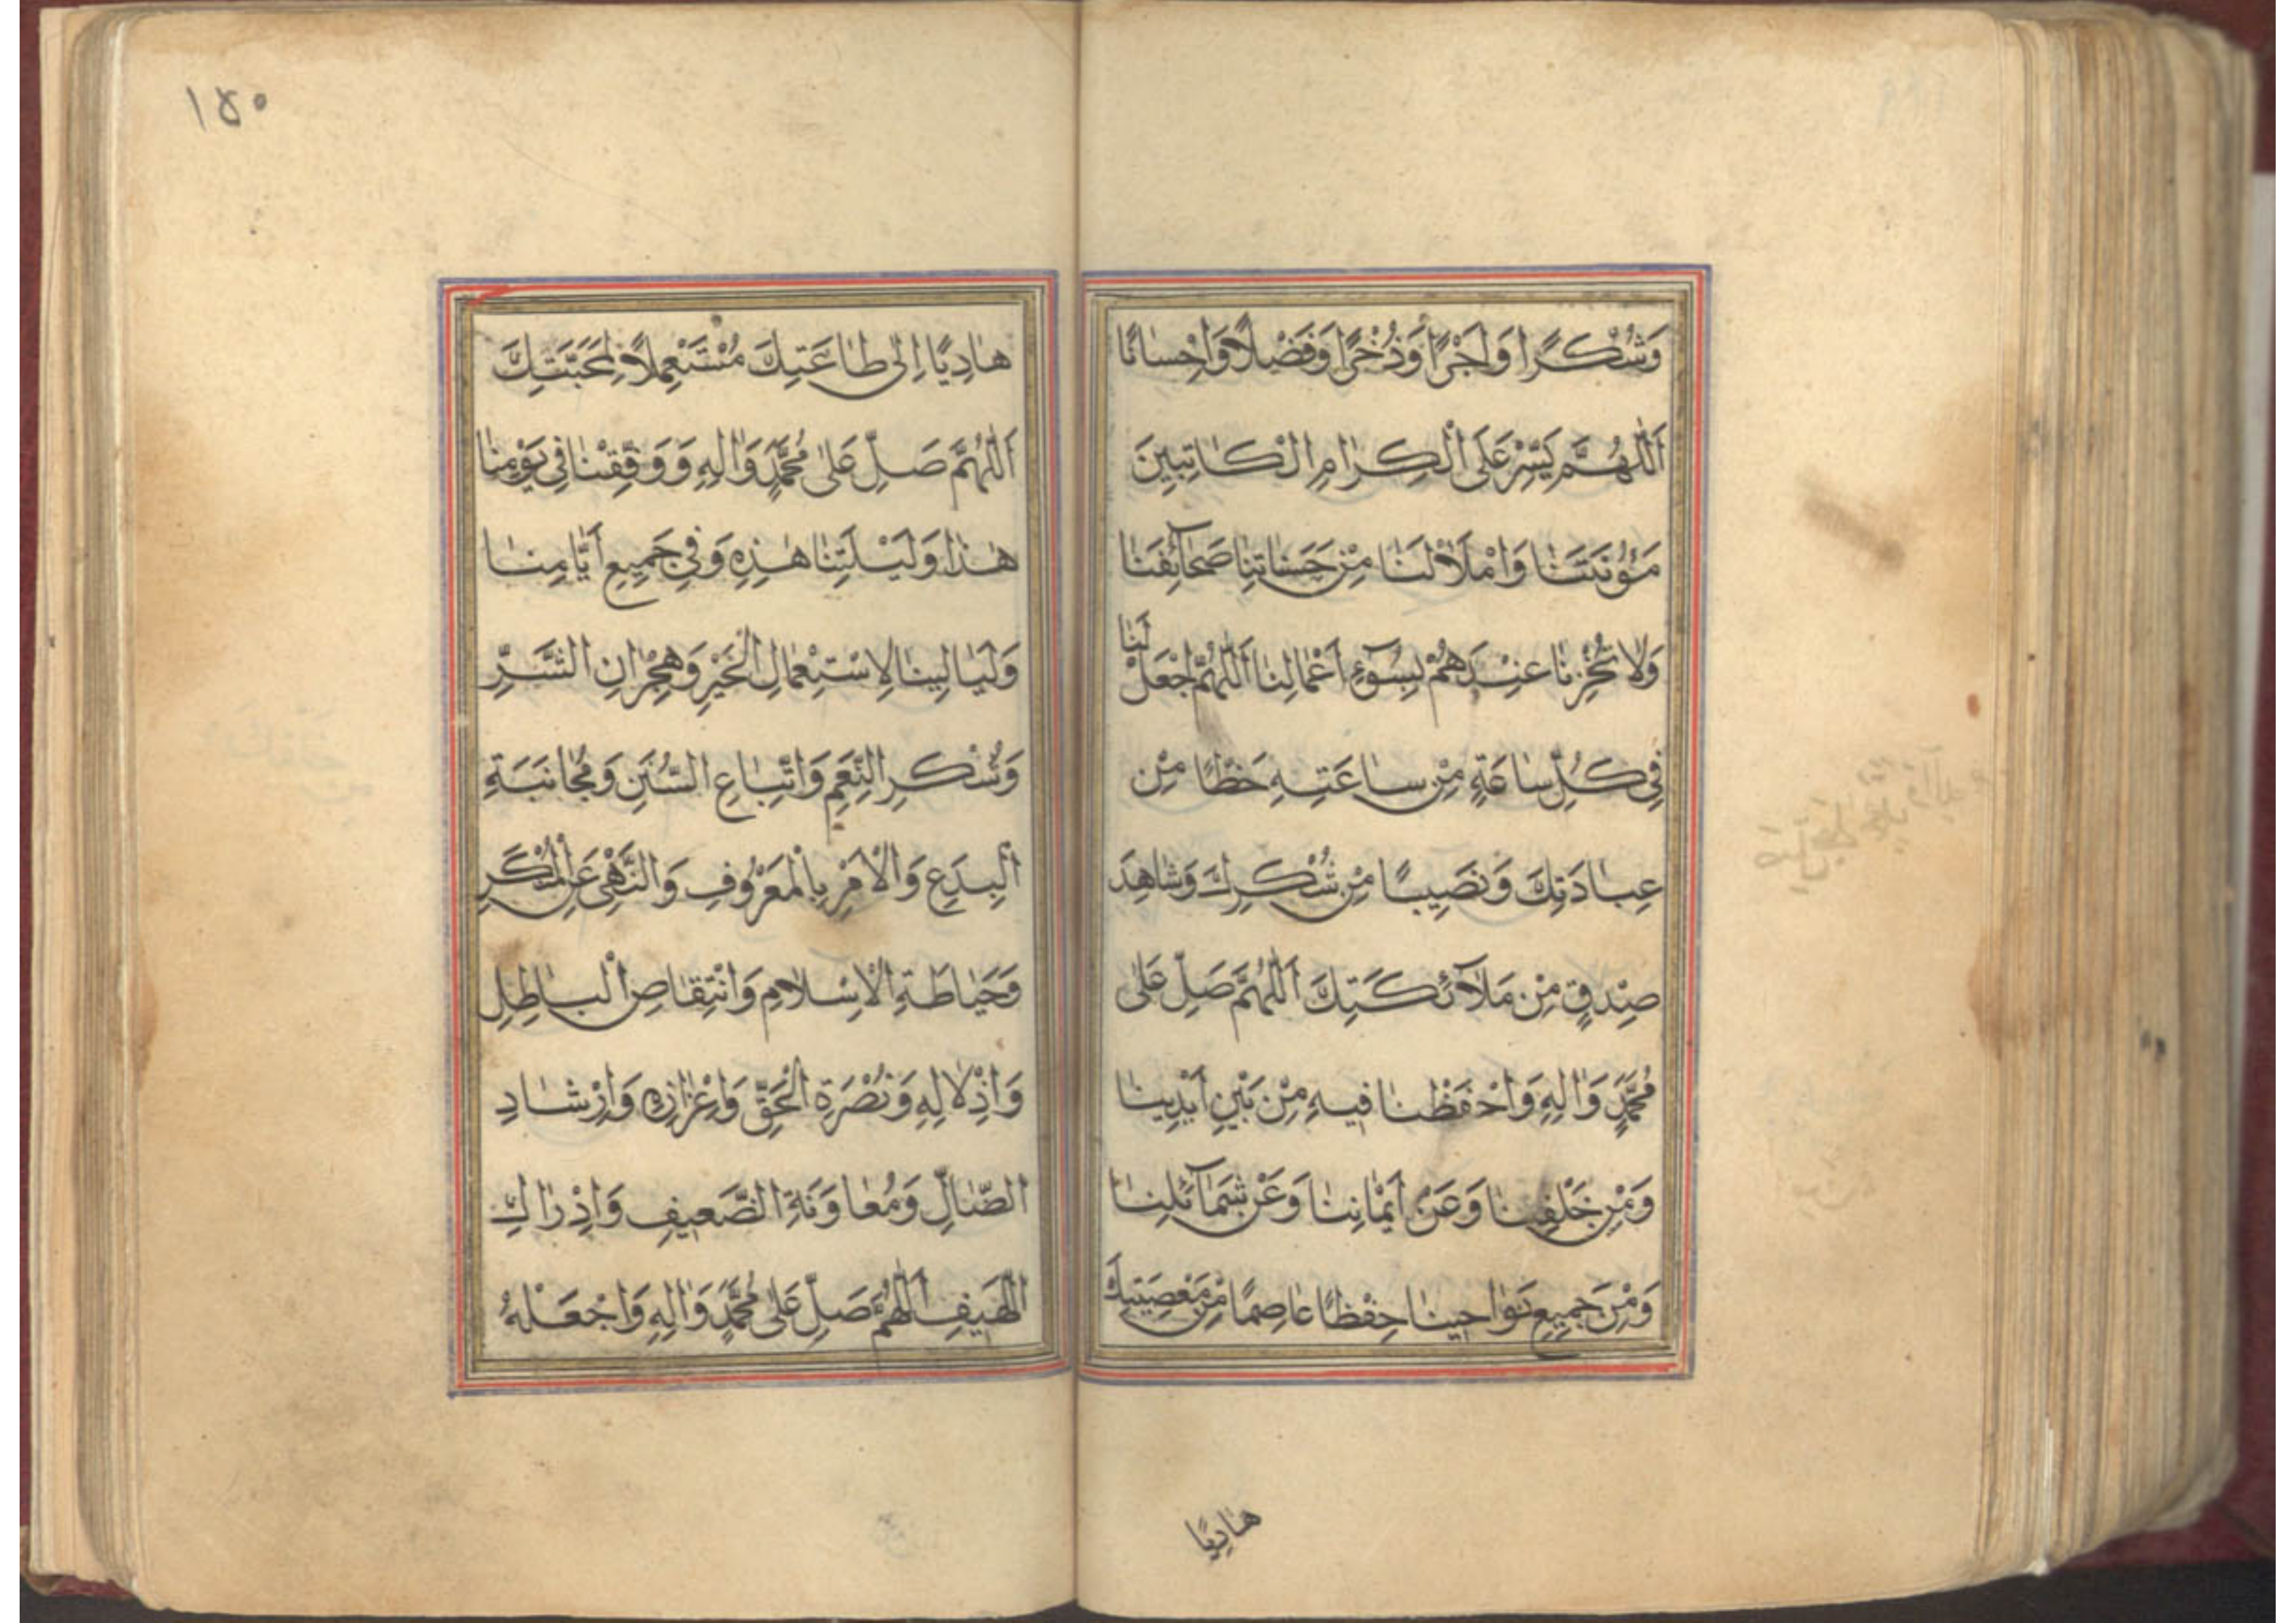 وَشُكْرًا وَاَجْرًا وَذُخْرًا وَفَضْلًا وَاِحْسَانًا
اَللّٰهُمَّ يَسِّرْ عَلَى الْكِرَامِ الْكَاتِبِينَ
مَؤُنَتَنَا وَامْلَاْ لَنَا مِنْ حَسَنَاتِنَا صَحَآئِفَنَا
وَلَا تُخْزِنَا عِنْدَهُمْ بِسُوٓءِ اَعْمَالِنَا اَللّٰهُمَّ اجْعَلْ لَنَا
فِي كُلِّ سَاعَةٍ مِنْ سَاعَتِهِ حَظًّا مِنْ
عِبَادَتِكَ وَنَصِيبًا مِنْ شُكْرِكَ وَشَاهِدَ
صِدْقٍ مِنْ مَلَآئِكَتِكَ اَللّٰهُمَّ صَلِّ عَلٰى
مُحَمَّدٍ وَاٰلِهِ وَاحْفَظْنَا فِيهِ مِنْ بَيْنِ اَيْدِينَا
وَمِنْ خَلْفِنَا وَعَنْ اَيْمَانِنَا وَعَنْ شَمَآئِلِنَا
وَمِنْ جَمِيعِ نَوَاحِينَا حِفْظًا عَاصِمًا مِنْ مَعْصِيَتِكَ
هَادِيًا
١٥٠
هَادِيًا اِلٰى طَاعَتِكَ مُسْتَعْمِلًا لِمَحَبَّتِكَ
اَللّٰهُمَّ صَلِّ عَلٰى مُحَمَّدٍ وَاٰلِهِ وَوَفِّقْنَا فِي يَوْمِنَا
هٰذَا وَلَيْلَتِنَا هٰذِهِ وَفِي جَمِيعِ اَيَّامِنَا
وَلَيَالِينَا لِاسْتِعْمَالِ الْخَيْرِ وَهِجْرَانِ الشَّرِّ
وَشُكْرِ النِّعَمِ وَاتِّبَاعِ السُّنَنِ وَمُجَانَبَةِ
الْبِدَعِ وَالْاَمْرِ بِالْمَعْرُوفِ وَالنَّهْيِ عَنِ الْمُنْكَرِ
وَحَيَاطَةِ الْاِسْلَامِ وَانْتِقَاصِ الْبَاطِلِ
وَاِذْلَالِهِ وَنُصْرَةِ الْحَقِّ وَاِعْزَازِهِ وَاِرْشَادِ
الضَّالِّ وَمُعَاوَنَةِ الضَّعِيفِ وَاِدْرَاكِ
اللَّهِيفِ اَللّٰهُمَّ صَلِّ عَلٰى مُحَمَّدٍ وَاٰلِهِ وَاجْعَلْهُ